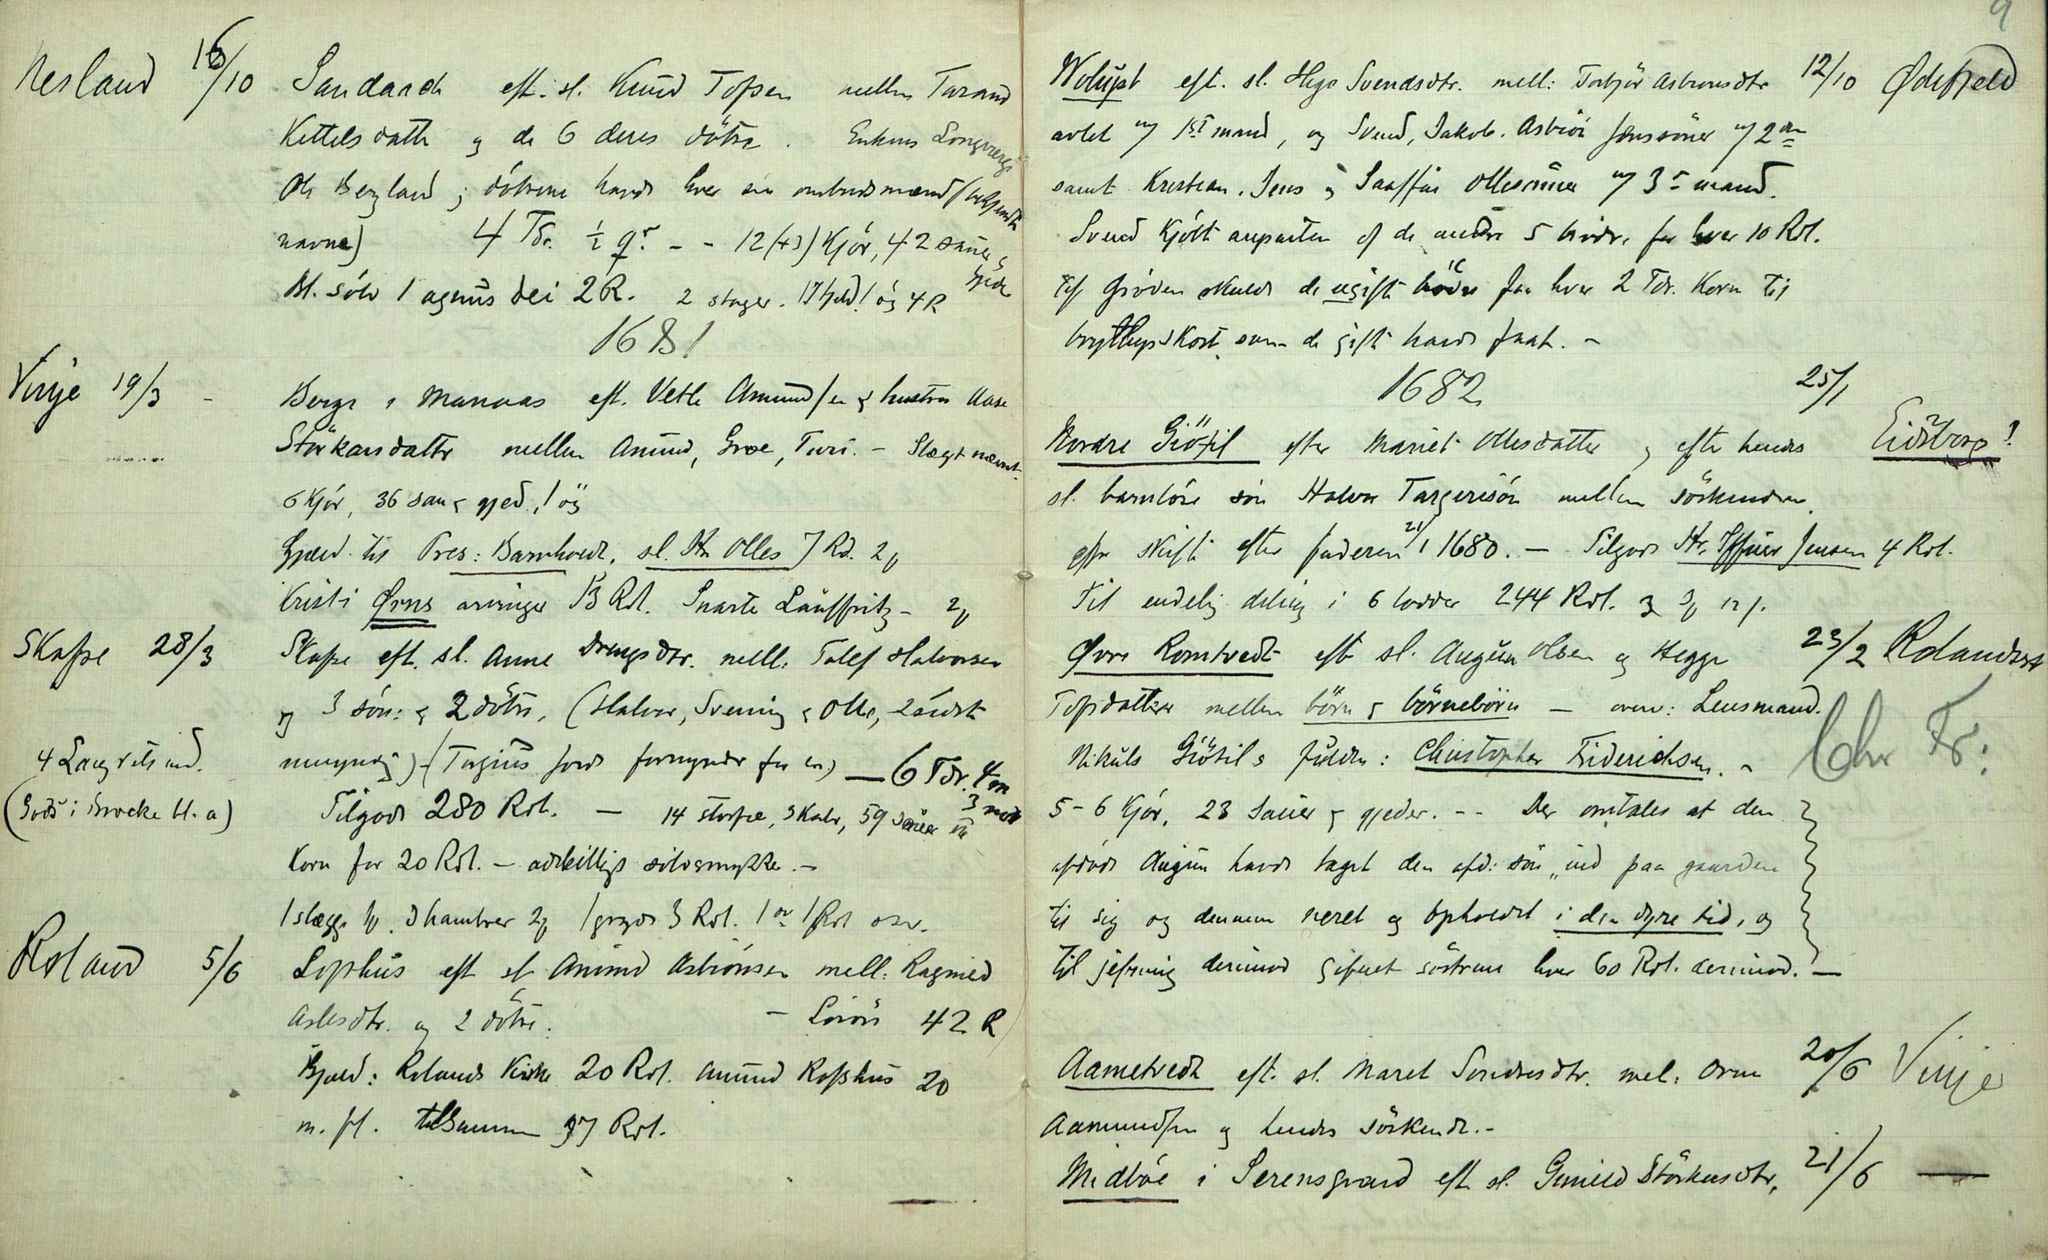 9
Nesland 16/10 Sandarch eft. sl. Knud Tofsen mellem Torand
Kittelsdatte og de 6 deres døtre. Enkens Longverge
Ole Bergland; døtrene havde hver sin ombudsmænd (
navne) 4 Tdr. ½ qr. - - 12 (+3) Kjör, 42 sauer &
Bl. sölv 1 agnus dei 2 R. 2 stager. 1 ög 4 R
1681
Vinje 19/3 - Berge i Manaas eft. Vetle Amundsen & hustru Aase
Störkarsdatter mellem Amund, Groe, Turi. - Slægt nævnt.
6 Kjör, 36 sau & gjed, 1 ög
Gjæld til Pres: Barnholdt, sl. Hr. Olles 7 Rd. 2
Kristi Ørns arvinger 13 Rdl. Snarte Lauffritz - 2
Skafse 28/3 Skafse eft. sl. Anne Drengsdtr. mell. Tolef Halvorsen
og 3 sön: & 2 döttre, (Halvor, Svenig & Olle, 2
myndig) - (Torjus formynder for en) — 6 Tdr.
4 Laugrets md.
(Gods i Brocke bl. a) Tilgode 280 Rdl. — 14 storfæ, 3 Kalv, 59 sauer
Korn for 20 Rdl. - adskilligt sölvsmykke. -
1 slægge, 3 hamrer 1 gryde 3 Rdl. 1 1 Rdl osv.
Roland 5/6 Lophus eft sl Amund Asbiönsen mell: Ragnild
Aslesdtr. og 2 dötre. - Lösöre 42 R
Gjæld: Rolands Kirke 20 Rdl. Amund Rofshus 20
m. fl. tilsammen 97 Rdl.
Wolupt eft. sl. Hege Svendsdtr. mell: Torbjör Asbiönsdtr 12/10 Ødefjeld
avlet m/ 1st mand, og Svend, Jakob, Asbiör Jenssöner m/ 2den
samt Kristian, Jens og Saaffie Ollesönner m/ 3. mand.
Svend Kjöbte anparten af de andre 5 brödre for hver 10 Rdl.
Af gröden skulde de ugifte brödre faa hver 2 Tdr. Korn til
bryllupskost, som de gifte havde faat. -
1682 25/1
Nordre Giötil efter Mariet Ollesdatter og efter hendes Eidsborg?
sl. barnlöse sön Halvor Targeirsön mellem söskendene,
efter skifte efter faderen 21/1 1680. — Tilgode Hr. Iffuer Jensen 4 Rdl.
Til endelig deling i 6 lodder 244 Rdl. 3
Øvre Romtvedt eft sl. Augun Olsen og Hegge 23/2 Rolandsst
Tofsdatter mellem börn & börnebörn — overv: Lensmand.
Nikuls Giötil & fuldm: Christopher Friderichsen. - Chr Fr:
5-6 Kjör, 23 sauer & gjeder. -- Der omtales at den
afdöde Augun havde taget den afd: sön "ind paa gaarden
til sig og dennem næret og opholdet i den dyre tid, og
til jefning derimod gifuet söstrene hver 60 Rdl. derimod. —
Aametvedt eft. sl. Maret Sondresdtr. mel: Orm 20/6 Vinje
Aamundsen og hendes söskende. -
Midböe i Serensgaard eft sl. Gunild Störkersdtr, 21/6 —